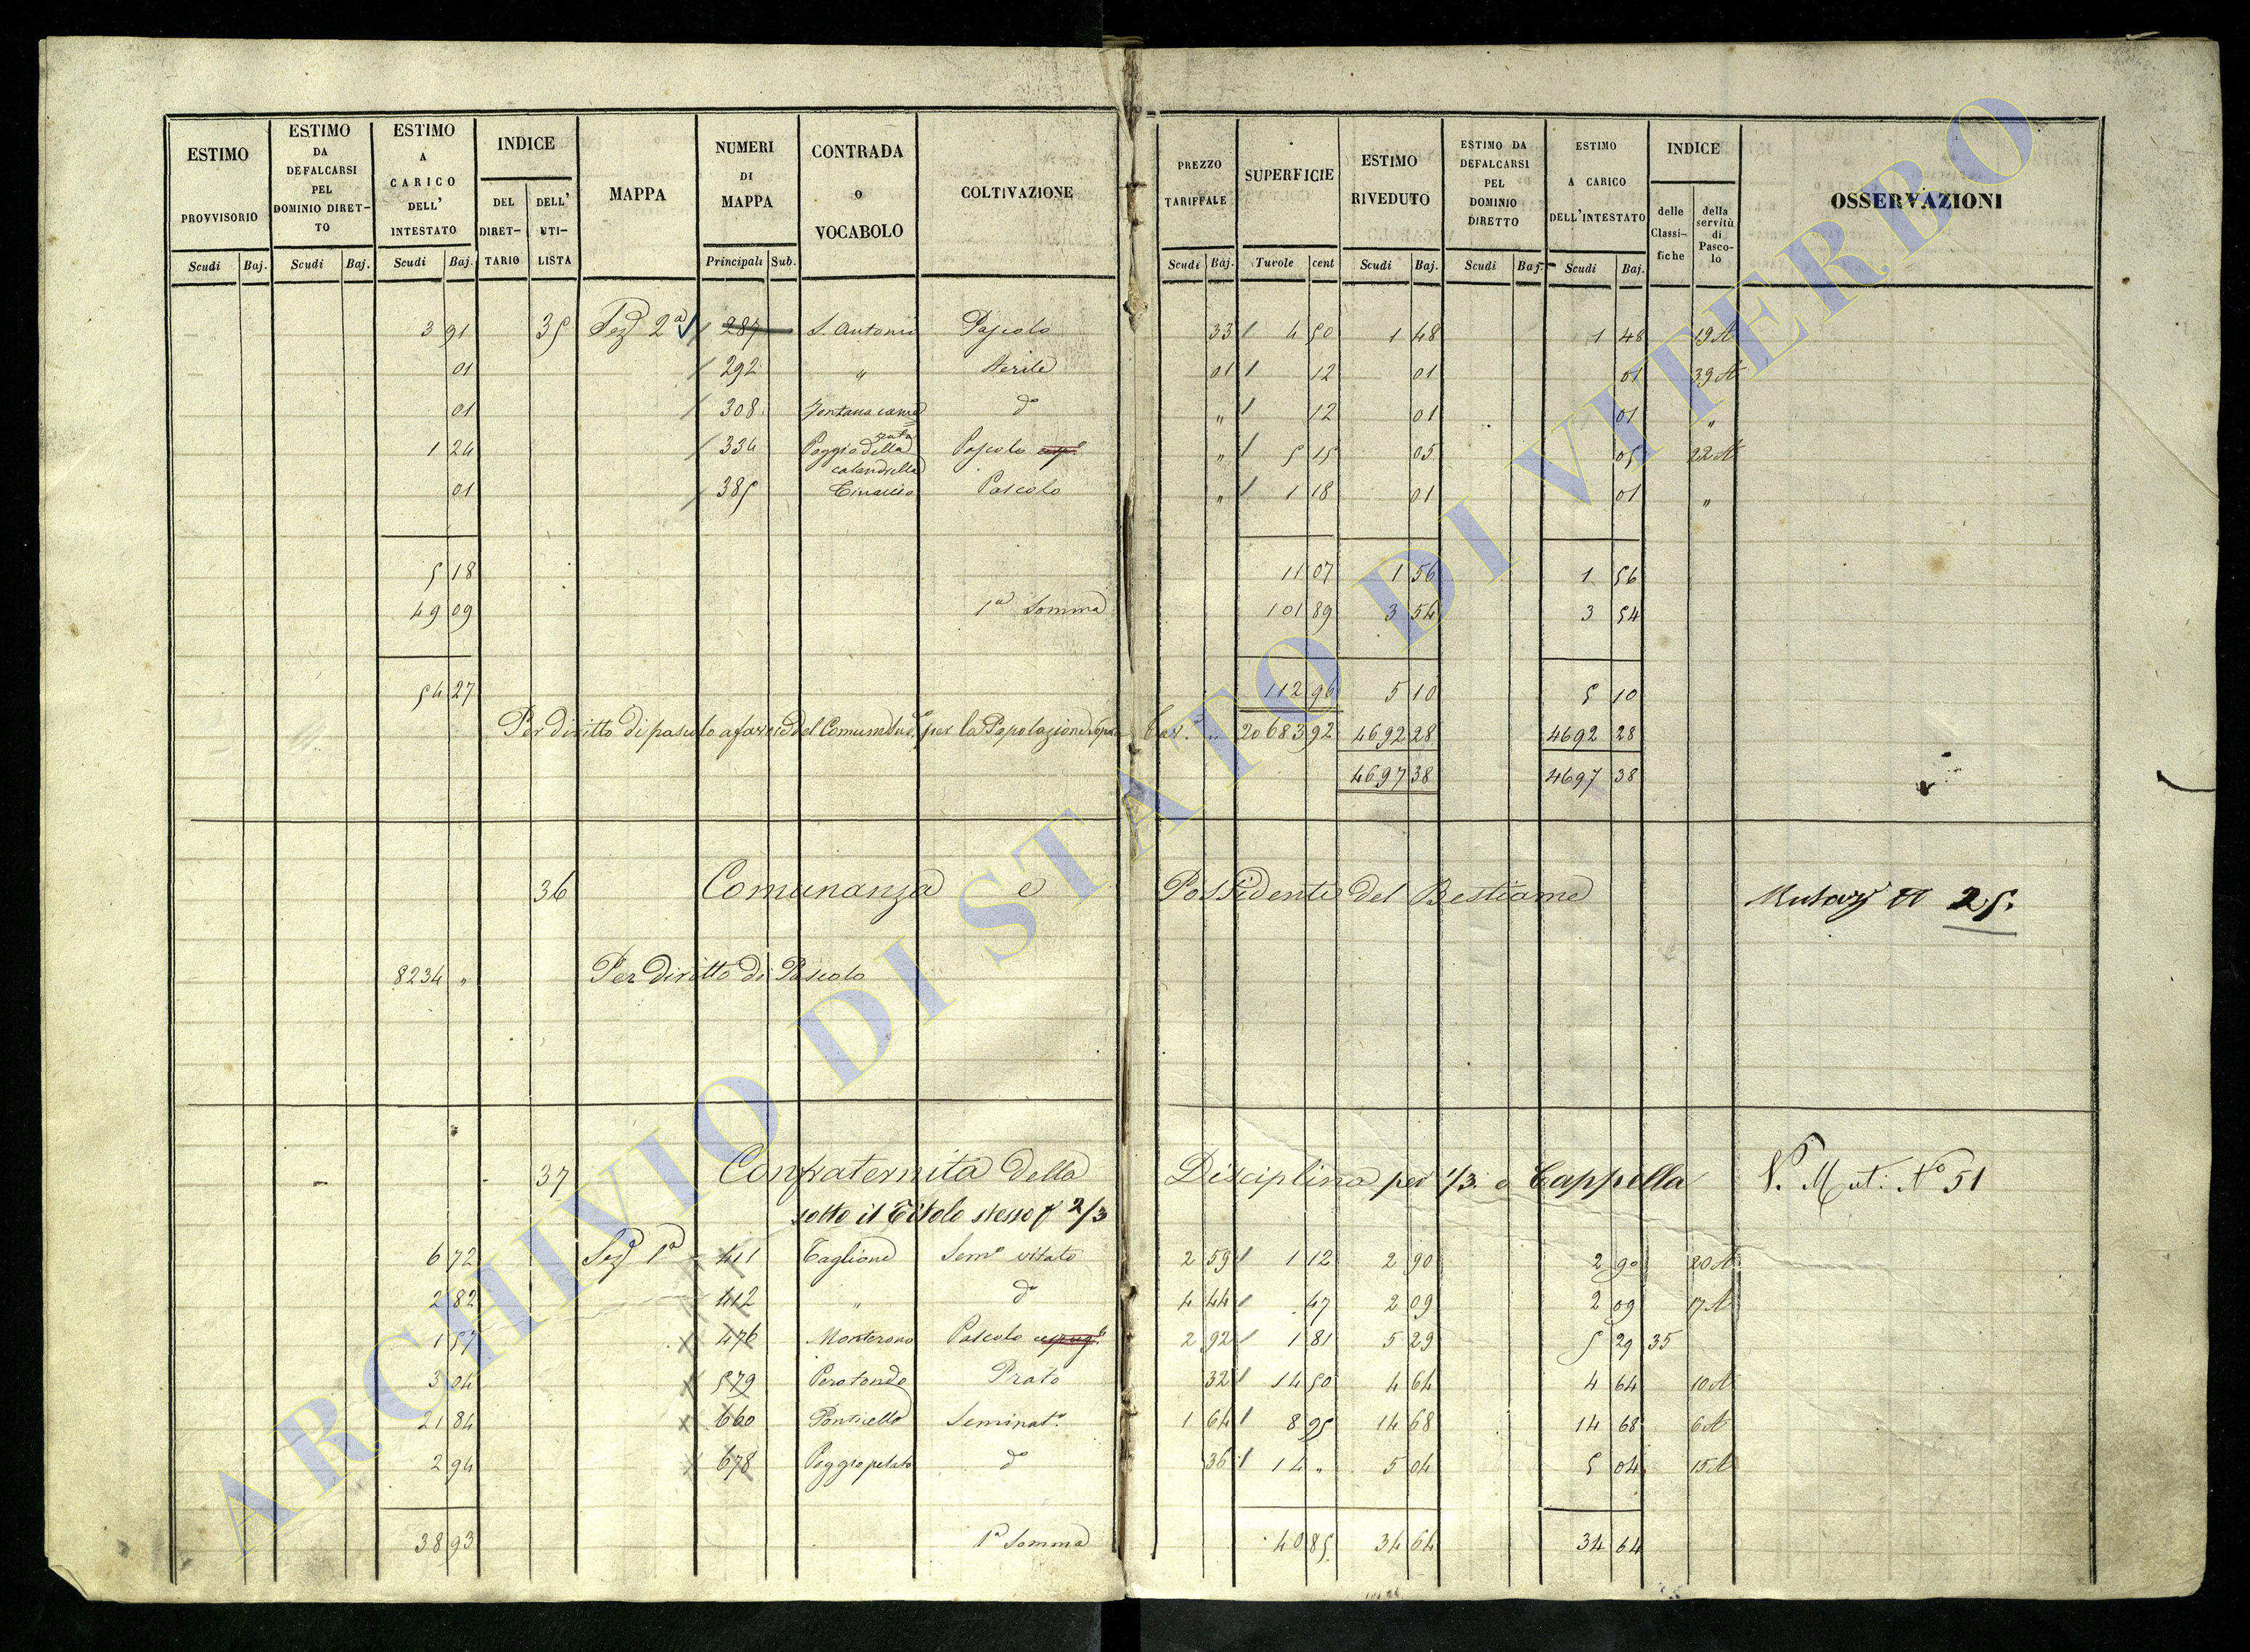 ESTIMO PROVVISORIO
ESTIMO DA DEFALCARSI PEL DOMINIO DIRET-TO
ESTIMO A CARICO DELL' INTESTATO
INDICE
DEL DIRET-TARIO
DELL' UTI-LISTA
MAPPA
NUMERI DI MAPPA
CONTRADA o VOCABOLO
COLTIVAZIONE
PREZZO TARIFFALE
SUPERFICIE
ESTIMO RIVEDUTO
ESTIMO DA DEFALCARSI PEL DOMINIO DIRETTO
ESTIMO A CARICO DELL'INTESTATO
INDICE
delle Classi-fiche
della servitù di Pasco-lo
OSSERVAZIONI
Scudi Baj. Scudi Baj. Scudi Baj. Principali Sub. Scudi Baj. Tavole cent Scudi Baj. Scudi Baj. Scudi Baj.
3 91 35 Sez 2a 287 S. Antonio Pascolo 33 4 50 1 48 1 48 19 A
01 292 " Sterile 01 12 01 01 39 A
01 308 Fontana camerata do " 12 01 01 "
1 24 334 Poggio della calandrella Pascolo " 5 15 05 05 22 A
01 385 Pascolo " 1 18 01 01 "
5 18 11 07 1 56 1 56
49 09 1a Somma 101 89 3 54 3 54
54 27 112 96 5 10 5 10
Per diritto di pascolo a favore del Comune per la Popolazione Tav. " 20683 92 4692 28 4692 28
4697 38 4697 38
36 Comunanza e Possidenti del Bestiame 25.
8234 " Per diritto di Pascolo
37 Confraternita della Disciplina per 1/3 e Cappella V. Mut: No 51
sotto il Titolo stesso p 2/3
6 72 Sez 1a 411 Taglione Semo vitato 2 59 1 12 2 90 2 90 20 A
2 82 412 " do 4 44 47 2 09 2 09 17 A
1 57 476 Monterono Pascolo 2 92 1 81 5 29 5 29 35
3 04 579 Perotondo Prato 32 14 50 4 64 4 64 10 A
21 84 660 Ponticello Seminato 1 64 8 95 14 68 14 68 6 A
2 94 678 Poggiopelato do 36 14 " 5 04 5 04 15 A
38 93 1a Somma 40 85 34 64 34 64
ARCHIVIO DI STATO DI VITERBO